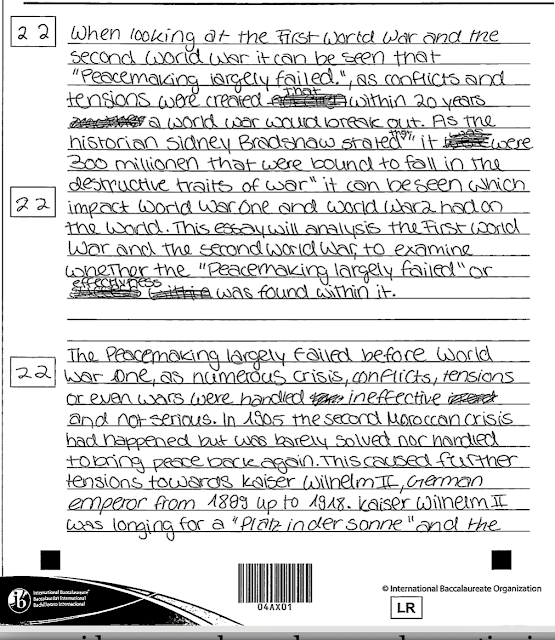 22 When looking at the First World War and the
second World War it can be seen that
"Peacemaking largely failed.", as conflicts and
tensions were created that within 20 years
a world war would break out. As the
historian Sidney Bradshaw stated "that it were
300 millionen that were bound to fall in the
destructive traits of war" it can be seen which
22 impact World War One and World War 2 had on
the world. This essay will analysis the First World
War and the second World War, to examine
whether the "Peacemaking largely failed" or
effectivness was found within it.
The Peacemaking largely failed before World
22 War One, as numerous crisis, conflicts, tensions
or even wars were handled ineffective
and not serious. In 1905 the second Moroccan Crisis
had happened but was barely solved nor handled
to bring peace back again. This caused further
tensions towards Kaiser Wilhelm II, German
emperor from 1899 up to 1918. Kaiser Wilhelm II
was longing for a "Platz in der Sonne" and the
ib International Baccalaureate
Baccalauréat International
Bachillerato Internacional
04AX01
© International Baccalaureate Organization
LR